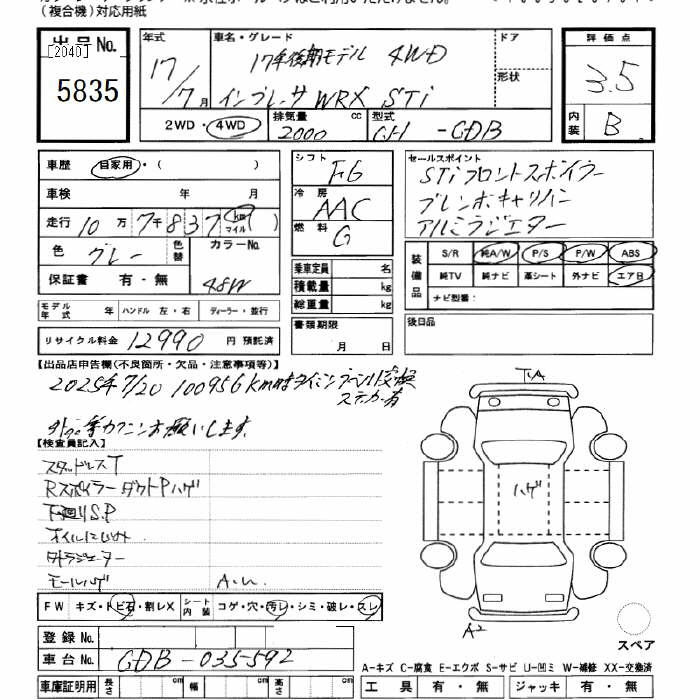 (複合機)対応用紙
出品No.
[2040]
5835
年式
17/7月
車名・グレード
17年後期モデル 4WD
インプレッサ WRX STi
ドア
形状
2WD・4WD
排気量 cc
2000
型式
GH-GDB
評価点
3.5
内装
B
車歴 自家用・( )
車検 年 月
走行 10万7千837 km マイル
色 グレー 色替 カラーNo. 48W
保証書 有・無
シフト F6
冷房 AAC
燃料 G
乗車定員 名
積載量 kg
総重量 kg
セールスポイント
STiフロントスポイラー
ブレンボキャリパー
アルミラジエター
装備品
S/R 純A/W P/S P/W ABS
純TV 純ナビ 革シート 外ナビ エアB
ナビ型番:
モデル年式 年 ハンドル 左・右 ディーラー・並行
リサイクル料金 12990 円 預託済
書類期限 月 日
後日品
【出品店申告欄(不良箇所・欠品・注意事項等)】
2025年7/20 100956km時タイミングベルト交換
ステッカー有
【検査員記入】
スタッドレスT
RスポイラーダクトPハゲ
下廻りS.P
オイルにじみ
モールハゲ
A.u
T.A
ハゲ
A2
スペア
FW キズ・トビ石・割レX シート内装 コゲ・穴・汚レ・シミ・破レ・スレ
登録No.
車台No. GDB-035592
車庫証明用 長さ cm 幅 cm 高さ cm
A-キズ C-腐食 E-エクボ S-サビ U-凹ミ W-補修 XX-交換済
工具 有・無 ジャッキ 有・無